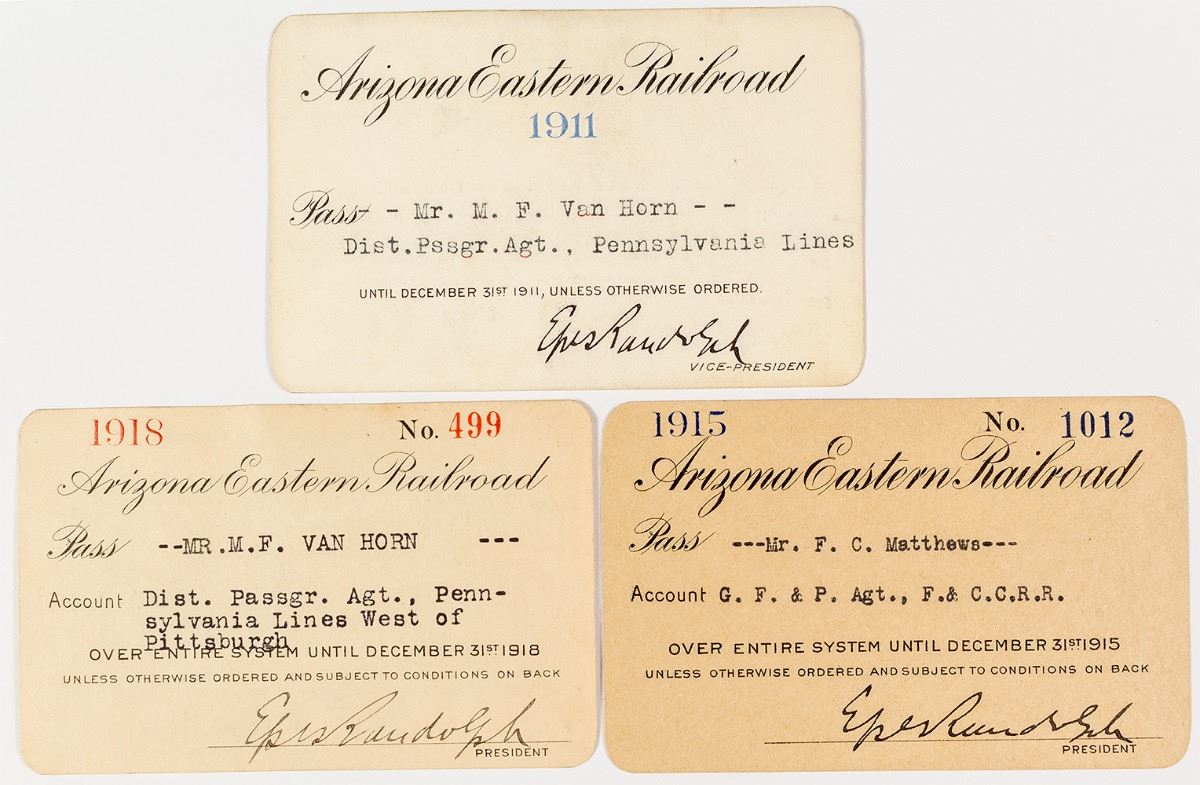 Arizona Eastern Railroad
1911
Pass - Mr. M. F. Van Horn - -
Dist.Pssgr.Agt., Pennsylvania Lines
UNTIL DECEMBER 31ST 1911, UNLESS OTHERWISE ORDERED.
Epes Randolph
VICE-PRESIDENT
1918 No. 499
Arizona Eastern Railroad
Pass --MR.M.F. VAN HORN ---
Account Dist. Passgr. Agt., Penn-
sylvania Lines West of
Pittsburgh
OVER ENTIRE SYSTEM UNTIL DECEMBER 31ST 1918
UNLESS OTHERWISE ORDERED AND SUBJECT TO CONDITIONS ON BACK
Epes Randolph
PRESIDENT
1915 No. 1012
Arizona Eastern Railroad
Pass ---Mr. F. C. Matthews---
Account G. F. & P. Agt., F.& C.C.R.R.
OVER ENTIRE SYSTEM UNTIL DECEMBER 31ST 1915
UNLESS OTHERWISE ORDERED AND SUBJECT TO CONDITIONS ON BACK
Epes Randolph
PRESIDENT